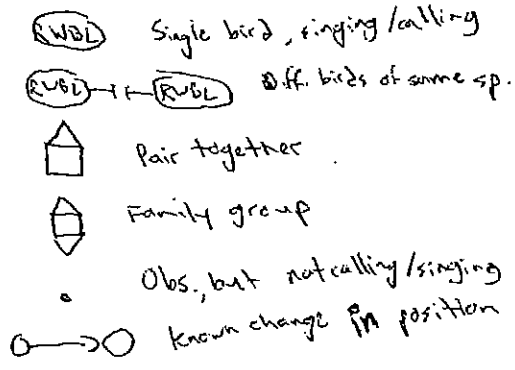 RWBL Single bird, singing/calling
RWBL RWBL Diff. birds of same sp.
Pair together
Family group
Obs., but not calling/singing
Known change in position